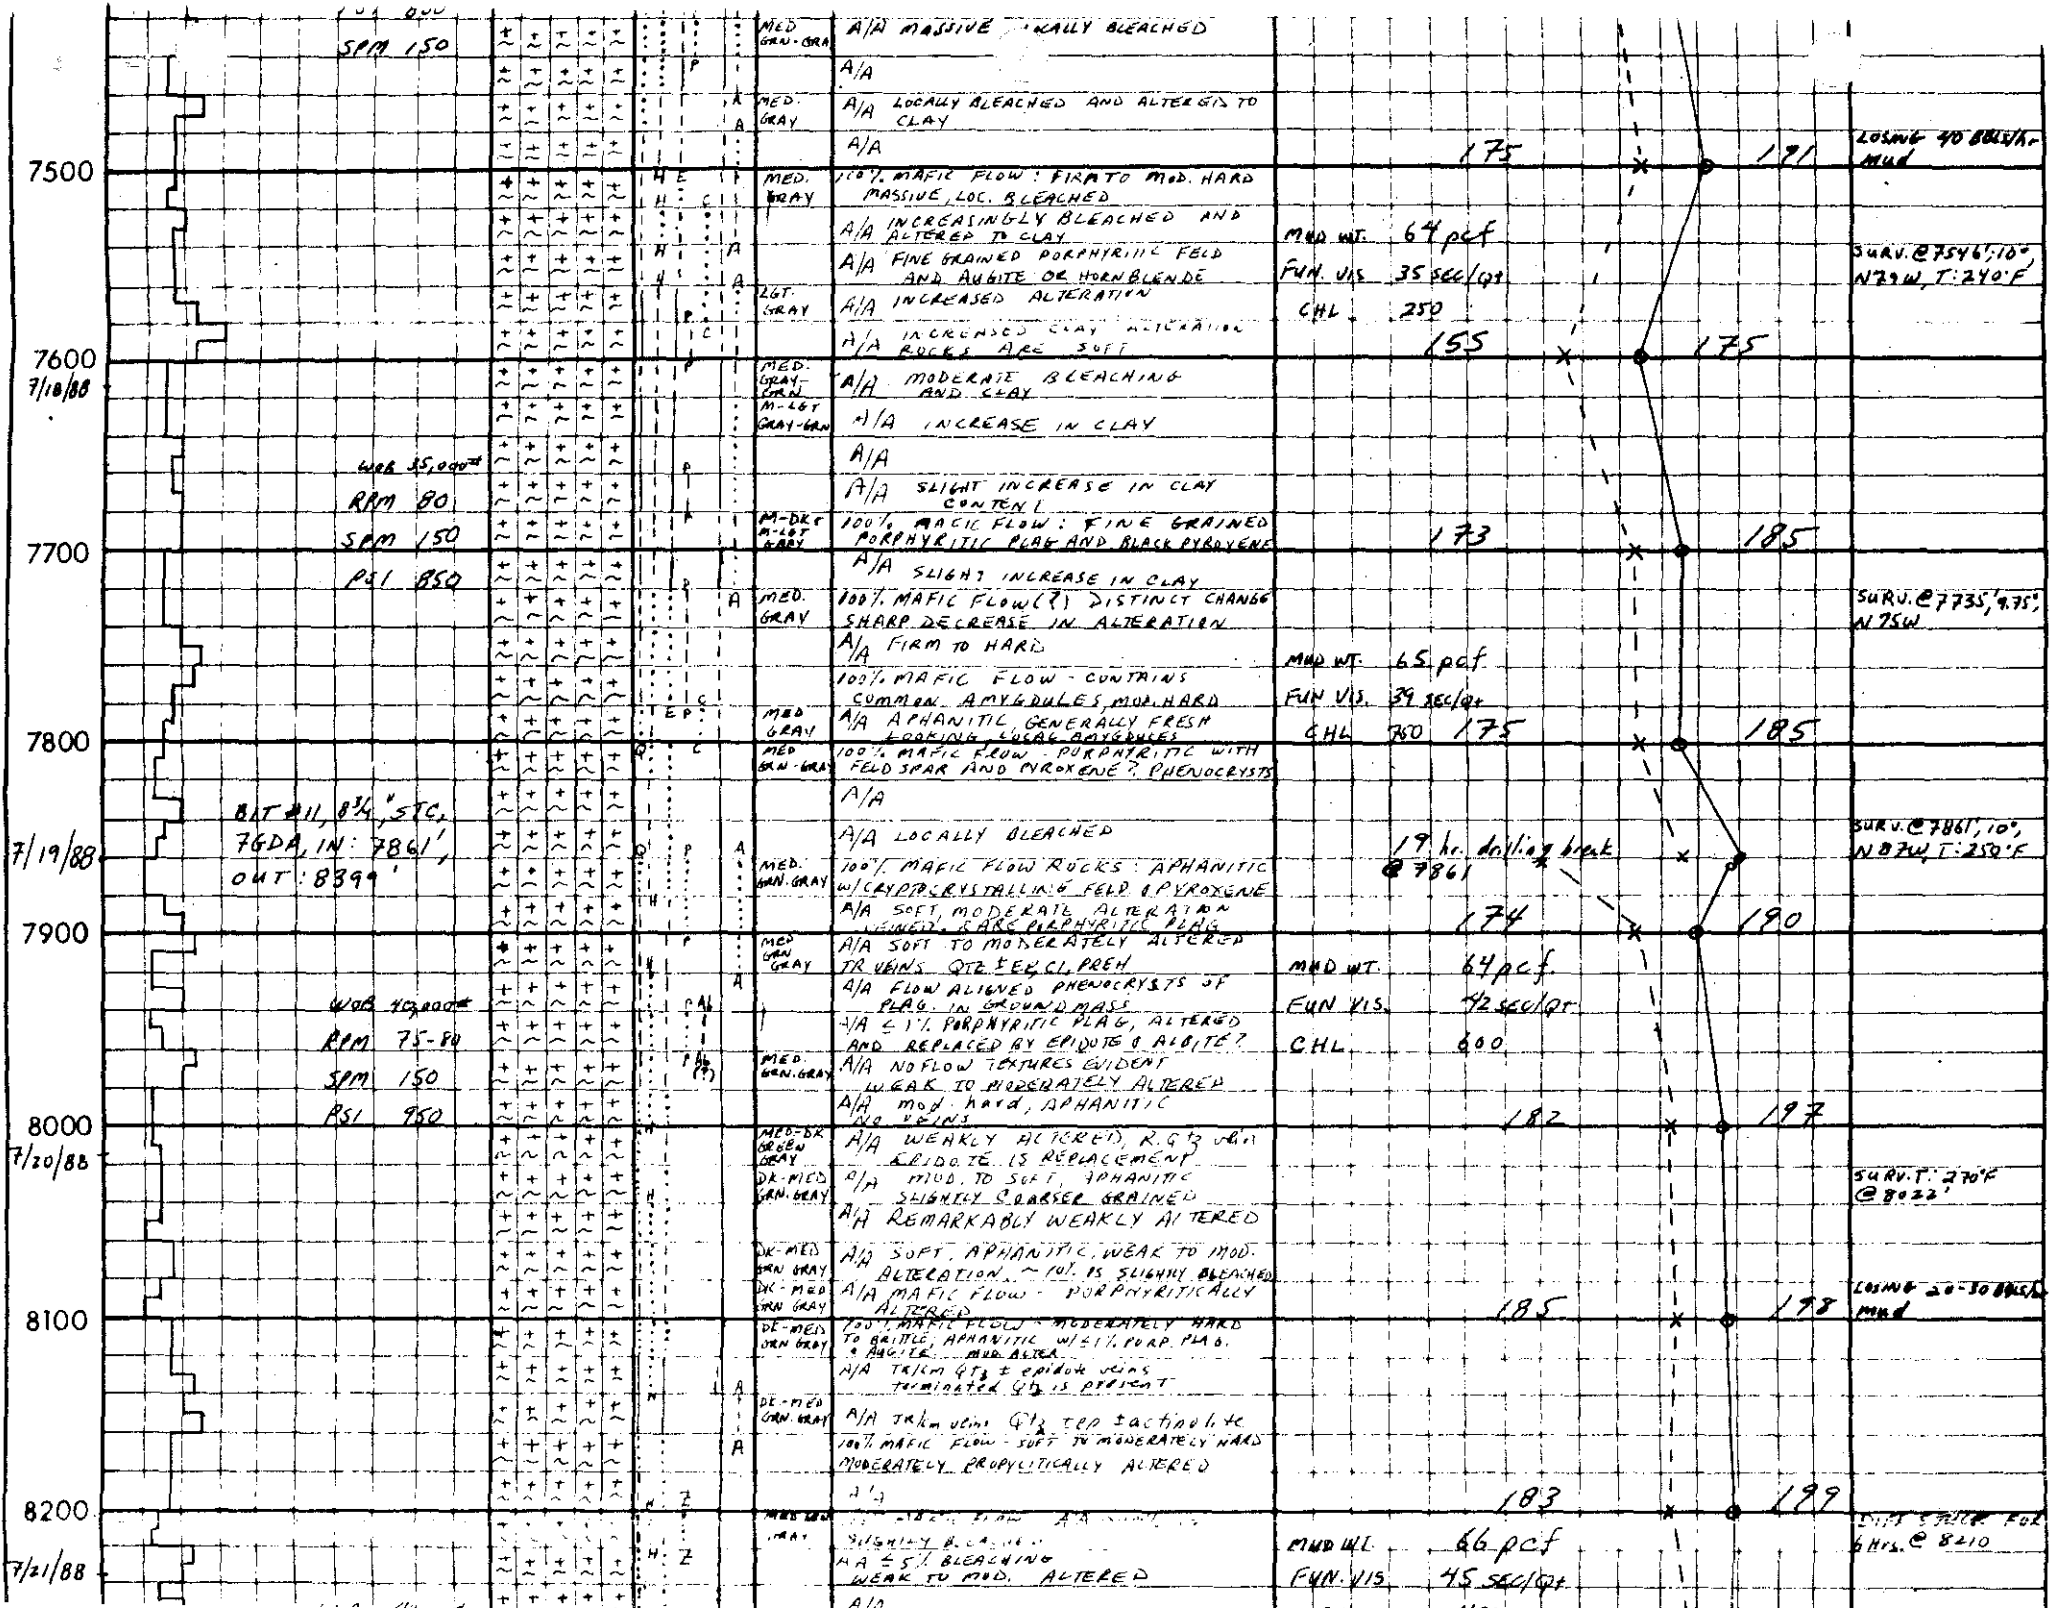 SPM 150
MED GRN-GRA
A/A MASSIVE BLEACHED
A/A
MED. GRAY
A/A LOCALLY BLEACHED AND ALTERED TO
CLAY
A/A
175
191
LOSING 40 BBLS/hr
Mud
7500
MED. GRAY
100% MAFIC FLOW: FIRM TO MOD. HARD
MASSIVE, LOC. BLEACHED
A/A INCREASINGLY BLEACHED AND
ALTERED TO CLAY
MUD WT. 64 pcf
A/A FINE GRAINED PORPHYRITIC FELD
AND AUGITE OR HORNBLENDE
FUN. VIS 35 SEC/QT
SURV. @ 7546', 10°,
N79W, T: 240°F
LGT. GRAY
A/A INCREASED ALTERATION
CHL 250
A/A INCREASED CLAY ALTERATION
ROCKS ARE SOFT
155
175
7600
7/18/88
MED. GRAY-GRN
A/A MODERATE BLEACHING
AND CLAY
M-LGT GRAY-GRN
A/A INCREASE IN CLAY
A/A
WOB 35,000#
RPM 80
SPM 150
PSI 850
A/A SLIGHT INCREASE IN CLAY
CONTENT
M-DRK M-LGT GRAY
100% MAFIC FLOW: FINE GRAINED
PORPHYRITIC PLAG AND BLACK PYROXENE
173
185
7700
A/A
SLIGHT INCREASE IN CLAY
MED. GRAY
100% MAFIC FLOW(?) DISTINCT CHANGE
SHARP DECREASE IN ALTERATION
SURV. @ 7735', 9.75°,
N75W
A/A FIRM TO HARD
MUD WT. 65 pcf
100% MAFIC FLOW - CONTAINS
COMMON AMYGDULES, MOD. HARD
FUN VIS. 39 SEC/QT
MED GRAY
A/A APHANITIC, GENERALLY FRESH
LOOKING, LOCAL AMYGDULES
CHL 750
175
185
7800
MED GRN-GRAY
100% MAFIC FLOW - PORPHYRITIC WITH
FELDSPAR AND PYROXENE? PHENOCRYSTS
A/A
BIT #11, 8¾", STC,
7GDA, IN: 7861',
OUT: 8399'
A/A LOCALLY BLEACHED
19 hr. drilling break
@ 7861
SURV. @ 7861', 10°,
N87W, T: 250°F
7/19/88
MED. GRN. GRAY
100% MAFIC FLOW ROCKS: APHANITIC
W/CRYPTOCRYSTALLINE FELD & PYROXENE
A/A SOFT, MODERATE ALTERATION
VEINED. RARE PORPHYRITIC PLAG
174
190
7900
MED GRN GRAY
A/A SOFT TO MODERATELY ALTERED
TR VEINS QTZ ± EP, CL, PREH
MUD WT. 64 pcf.
A/A FLOW ALIGNED PHENOCRYSTS OF
PLAG. IN GROUNDMASS
FUN VIS. 42 SEC/QT
WOB 40,000#
RPM 75-80
SPM 150
PSI 950
A/A ≤1% PORPHYRITIC PLAG, ALTERED
AND REPLACED BY EPIDOTE & ALBITE?
CHL 600
MED. GRN. GRAY
A/A NO FLOW TEXTURES EVIDENT
WEAK TO MODERATELY ALTERED
A/A mod. hard, APHANITIC
NO VEINS
182
197
8000
7/20/88
MED-DK GREEN GRAY
A/A WEAKLY ALTERED, R. Qtz vein
EPIDOTE IS REPLACEMENT
DK-MED GRN. GRAY
A/A MOD. TO SOFT, APHANITIC
SLIGHTLY COARSER GRAINED
SURV. T: 270°F
@ 8022'
A/A REMARKABLY WEAKLY ALTERED
DK-MED GRN GRAY
A/A SOFT, APHANITIC, WEAK TO MOD.
ALTERATION. ~10% IS SLIGHTLY BLEACHED
DK-MED GRN GRAY
A/A MAFIC FLOW - PORPHYRITICALLY
ALTERED
185
198
LOSING 20-30 BBLS/hr
mud
8100
DK-MED GRN GRAY
100% MAFIC FLOW - MODERATELY HARD
TO BRITTLE, APHANITIC W/≤1% PORP. PLAG.
& AUGITE. MOD. ALTER
A/A TR/Cm QTZ ± epidote veins
terminated Qtz is present
DK-MED GRN. GRAY
A/A TR/Cm veins Qtz ±ep ±actinolite
100% MAFIC FLOW - SOFT TO MODERATELY HARD
MODERATELY PROPYLITICALLY ALTERED
A/A
183
199
8200
FLOW
SLIGHTLY
STUCK FOR
6 Hrs. @ 8210
MUD WT. 66 pcf
7/21/88
A/A ≤5% BLEACHING
WEAK TO MOD. ALTERED
FUN. VIS 45 SEC/QT
A/A